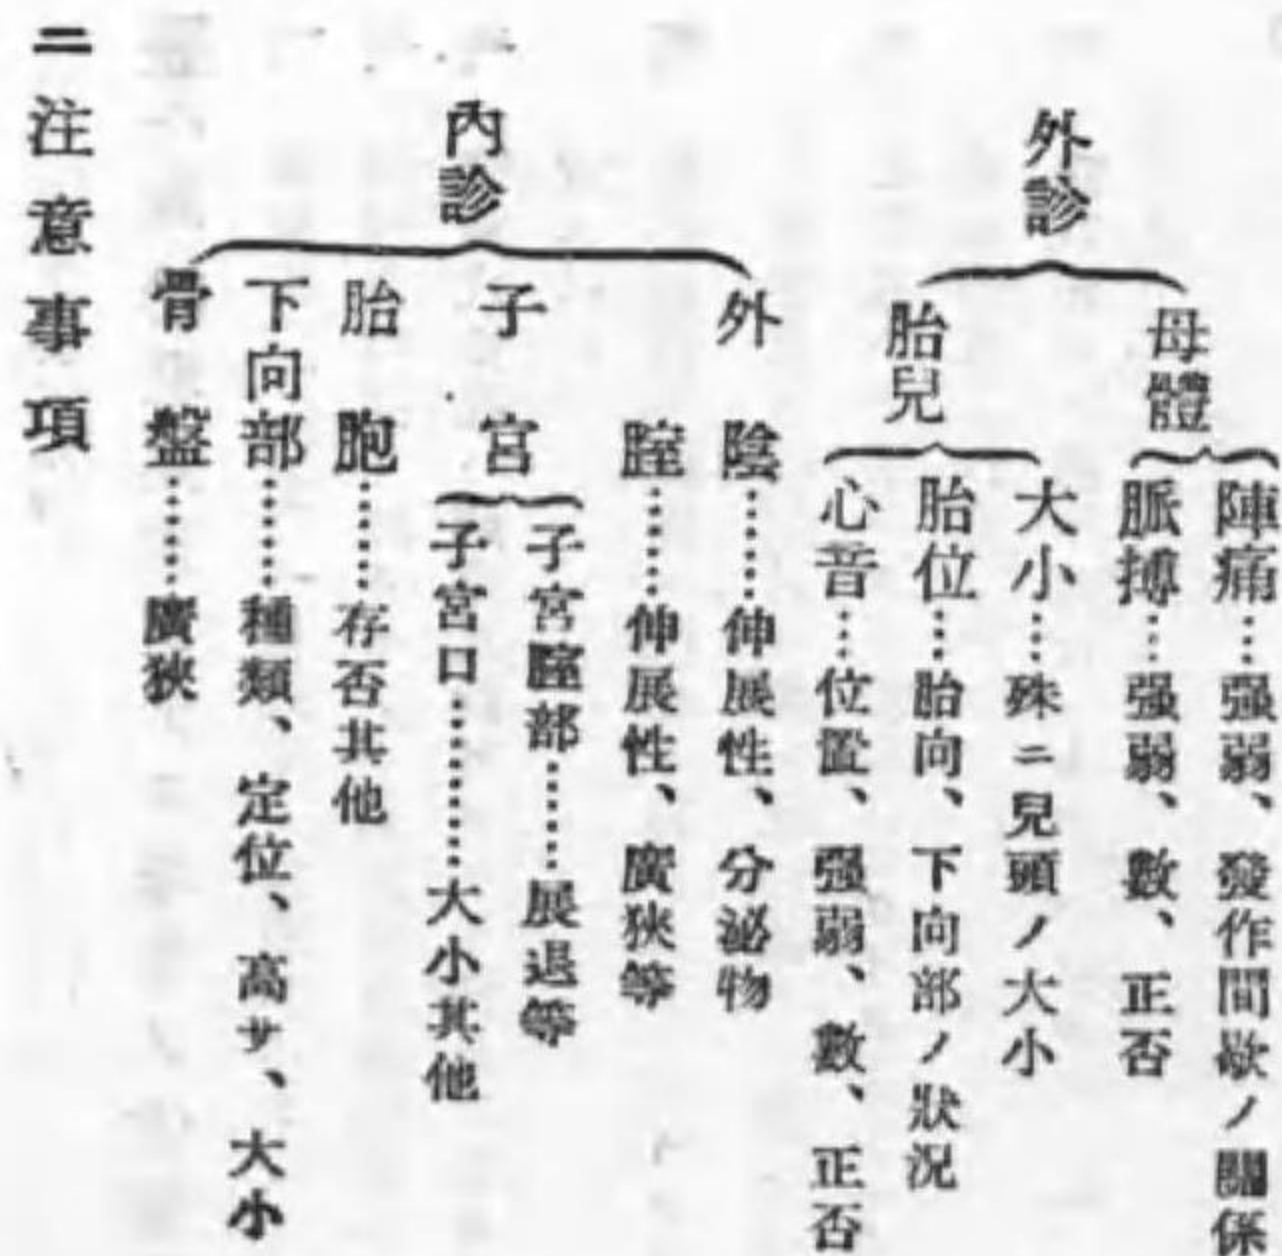 外診
母體
陣痛……强弱、發作間歇ノ關係
脈搏……强弱、數、正否
胎兒
大小……殊ニ兒頭ノ大小
胎位……胎向、下向部ノ狀況
心音……位置、强弱、數、正否
內診
外陰……伸展性、分泌物
腟……伸展性、廣狹等
子宮
子宮腟部……展退等
子宮口……大小其他
胎胞……存否其他
下向部……種類、定位、高サ、大小
骨盤……廣狹
二注意事項